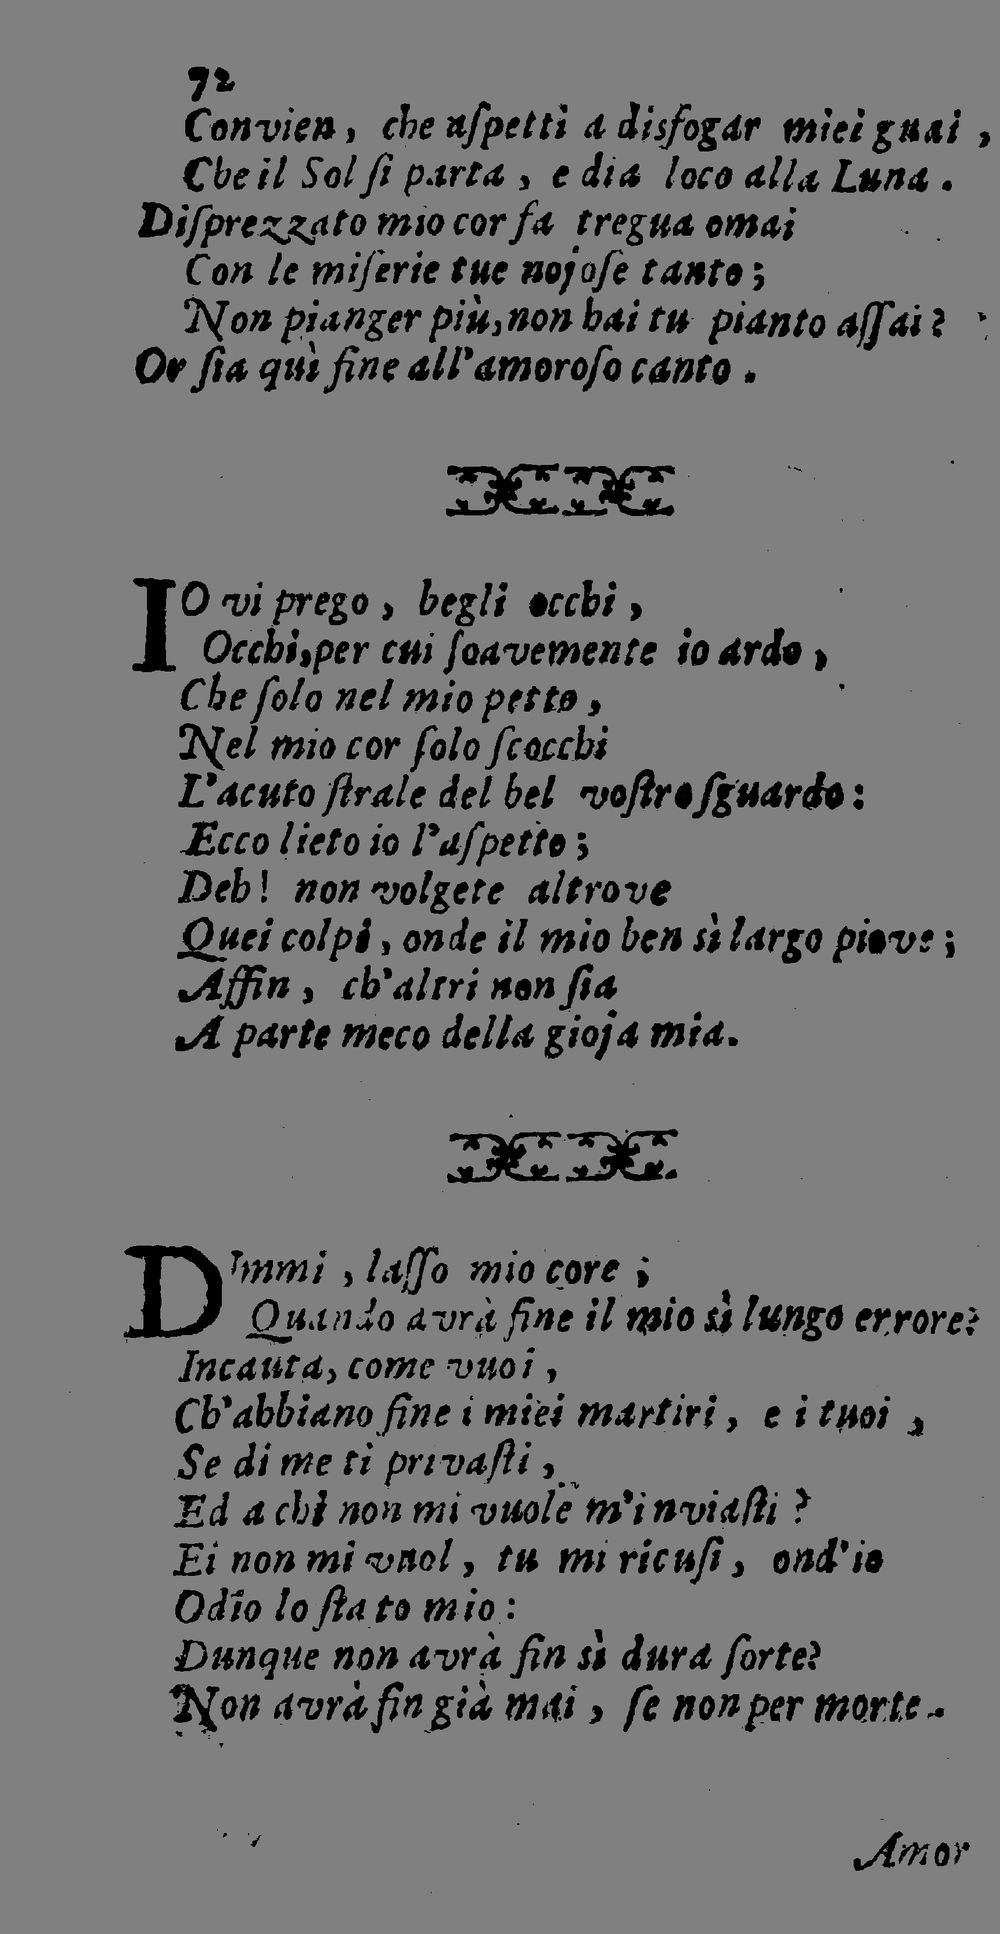 72
Convien, che aſpetti a disfogar miei guai,
Che il Sol ſi parta, e dia loco alla Luna.
Diſprezzato mio cor fa tregua omai
Con le miſerie tue nojoſe tanto;
Non pianger più, non hai tu pianto aſſai?
Or ſia quì fine all'amoroſo canto.
IO vi prego, begli occhi,
Occhi, per cui ſoavemente io ardo,
Che ſolo nel mio petto,
Nel mio cor ſolo ſcocchi
L'acuto ſtrale del bel voſtro ſguardo:
Ecco lieto io l'aſpetto;
Deh! non volgete altrove
Quei colpi, onde il mio ben sì largo piove;
Affin, ch'altri non ſia
A parte meco della gioja mia.
DImmi, laſſo mio core;
Quando avrà fine il mio sì lungo errore?
Incauta, come vuoi,
Ch'abbiano fine i miei martiri, e i tuoi,
Se di me ti privaſti,
Ed a chi non mi vuole m'inviaſti?
Ei non mi vuol, tu mi ricuſi, ond'io
Odio lo ſtato mio:
Dunque non avrà fin sì dura ſorte?
Non avrà fin già mai, ſe non per morte.
Amor